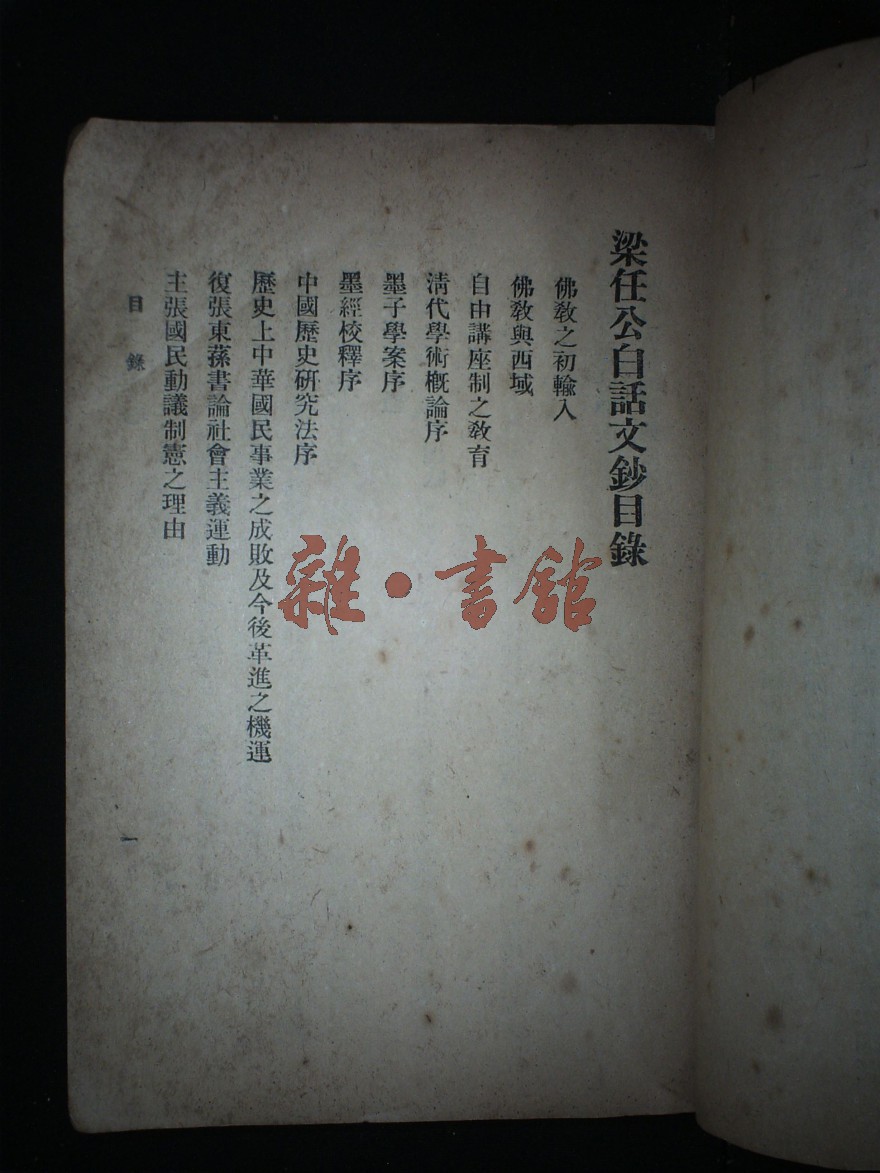 梁任公白話文鈔目錄
佛敎之初輸入
佛敎與西域
自由講座制之敎育
淸代學術概論序
墨子學案序
墨經校釋序
中國歷史硏究法序
歷史上中華國民事業之成敗及今後革進之機運
復張東蓀書論社會主義運動
主張國民動議制憲之理由
目錄
一
雜·書館